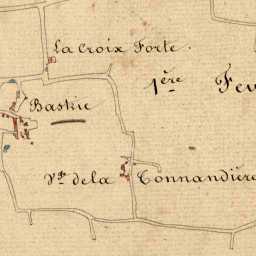 La Croix Forte.
1ère Feu
Baskie
Vge de la Connandière